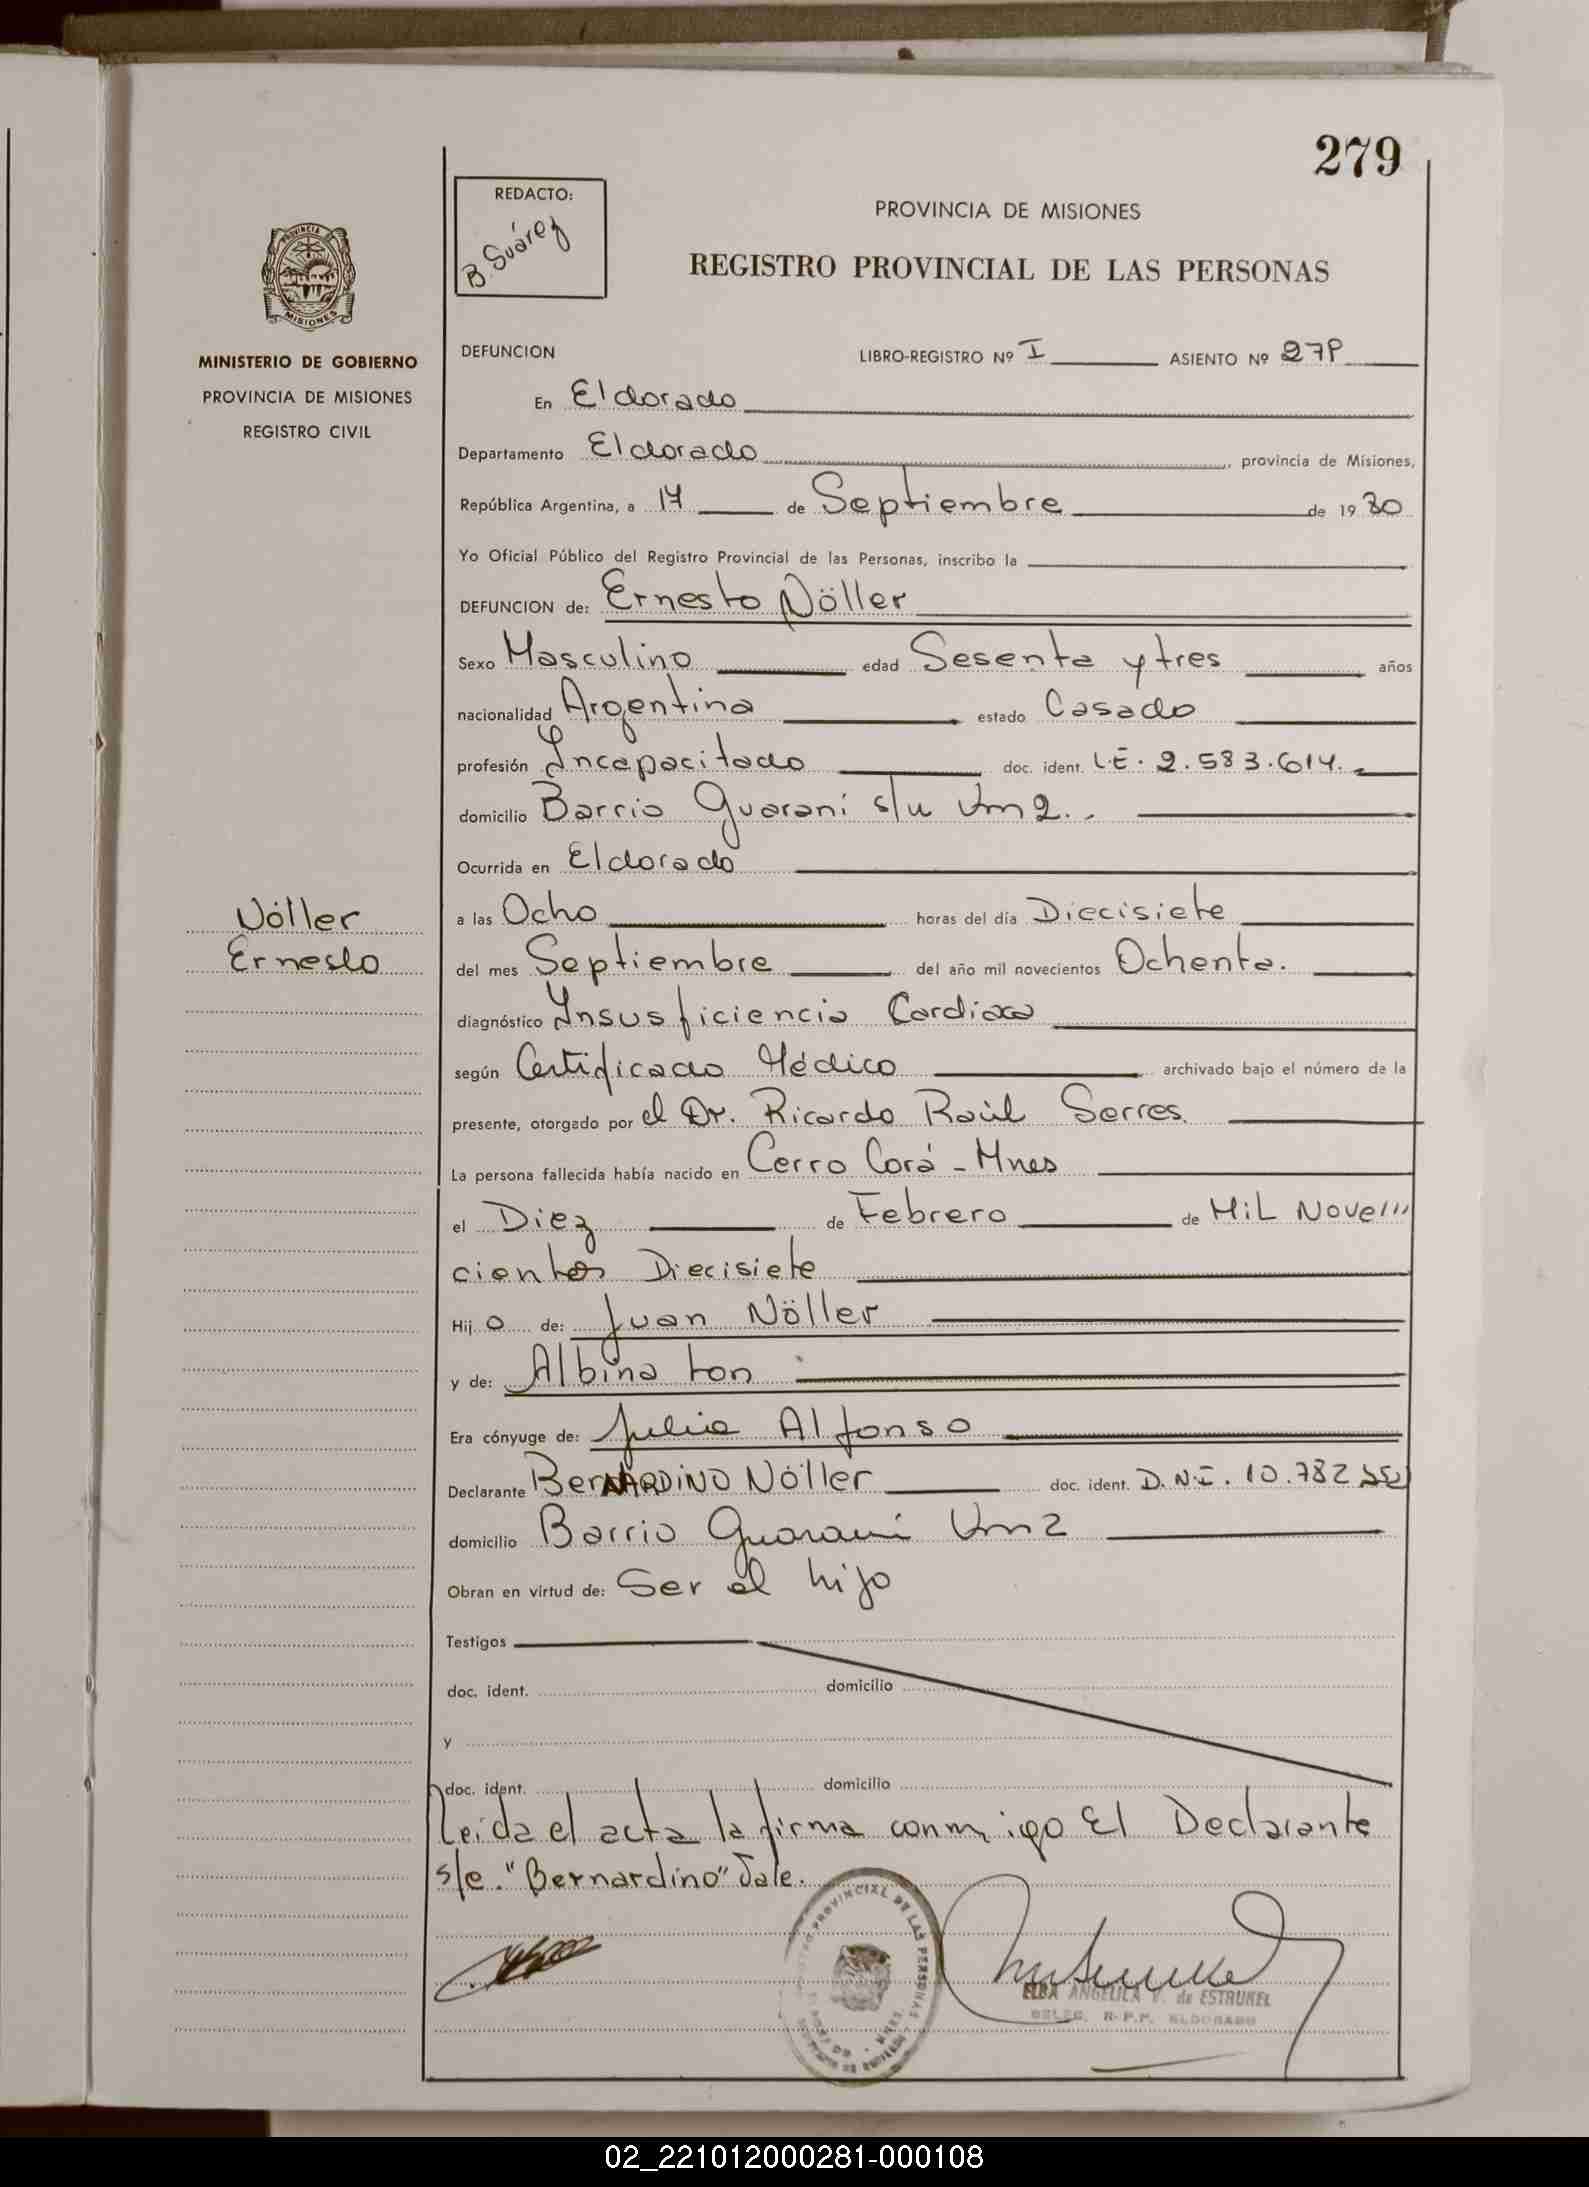 279
REDACTO:
B. Suárez
PROVINCIA DE MISIONES
REGISTRO PROVINCIAL DE LAS PERSONAS
PROVINCIA DE MISIONES
MINISTERIO DE GOBIERNO
PROVINCIA DE MISIONES
REGISTRO CIVIL
DEFUNCION LIBRO-REGISTRO Nº I ASIENTO Nº 279
En Eldorado
Departamento Eldorado, provincia de Misiones,
República Argentina, a 17 de Septiembre de 19 80
Yo Oficial Público del Registro Provincial de las Personas, inscribo la
DEFUNCION de: Ernesto Nöller
Sexo Masculino edad Sesenta y tres años
nacionalidad Argentina estado Casado
profesión Incapacitado doc. ident. L.E. 2.583.614.
domicilio Barrio Guaraní s/n Km 2.
Ocurrida en Eldorado
Nöller
Ernesto
a las Ocho horas del día Diecisiete
del mes Septiembre del año mil novecientos Ochenta.
diagnóstico Insusficiencia Cardiaca
según Certificado Médico archivado bajo el número de la
presente, otorgado por el Dr. Ricardo Raúl Serres.
La persona fallecida había nacido en Cerro Corá - Mnes
el Diez de Febrero de Mil Nove
cientos Diecisiete
Hij o de: Juan Nöller
y de: Albina
Era cónyuge de: Julia Alfonso
Declarante BerNARDINO Nöller doc. ident. D.N.I. 10.782
domicilio Barrio Guaraní Km 2
Obran en virtud de: Ser el hijo
Testigos
doc. ident. domicilio
y
doc. ident. domicilio
Leída el acta la firma conmigo El Declarante
s/e. "Bernardino" Vale.
PROVINCIAL DE LAS PERSONAS
ELBA ANGELICA V. de ESTRUKEL
DELEG. R.P.P. ELDORADO
02_221012000281-000108